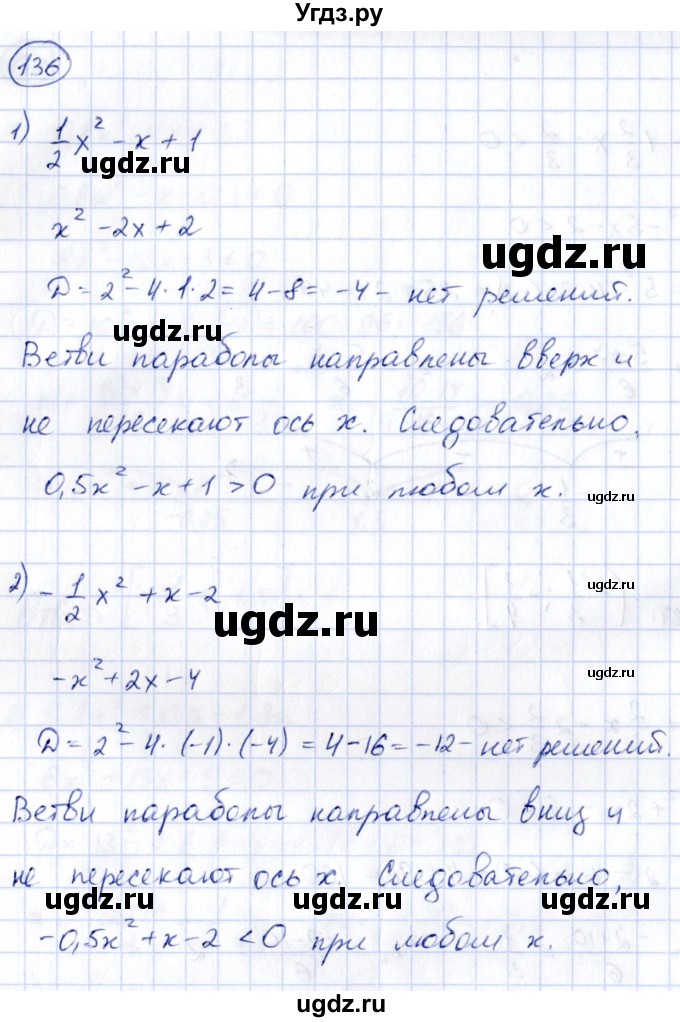 Угдз.ру
136
1) 1/2 x² - x + 1
ugdz.ru
x² - 2x + 2
ugdz.ru
D = 2² - 4·1·2 = 4 - 8 = -4 - нет решений.
ugdz.ru
Ветви параболы направлены вверх и
не пересекают ось x. Следовательно,
0,5x² - x + 1 > 0 при любом x.
ugdz.ru
2) -1/2 x² + x - 2
ugdz.ru
ugdz.ru
-x² + 2x - 4
ugdz.ru
D = 2² - 4·(-1)·(-4) = 4 - 16 = -12 - нет решений.
Ветви параболы направлены вниз и
не пересекают ось x. Следовательно,
ugdz.ru
ugdz.ru
-0,5x² + x - 2 < 0 при любом x.
ugdz.ru